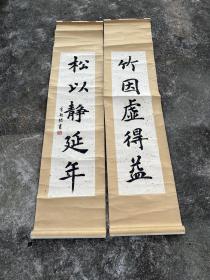 竹因虚得益
松以静延年